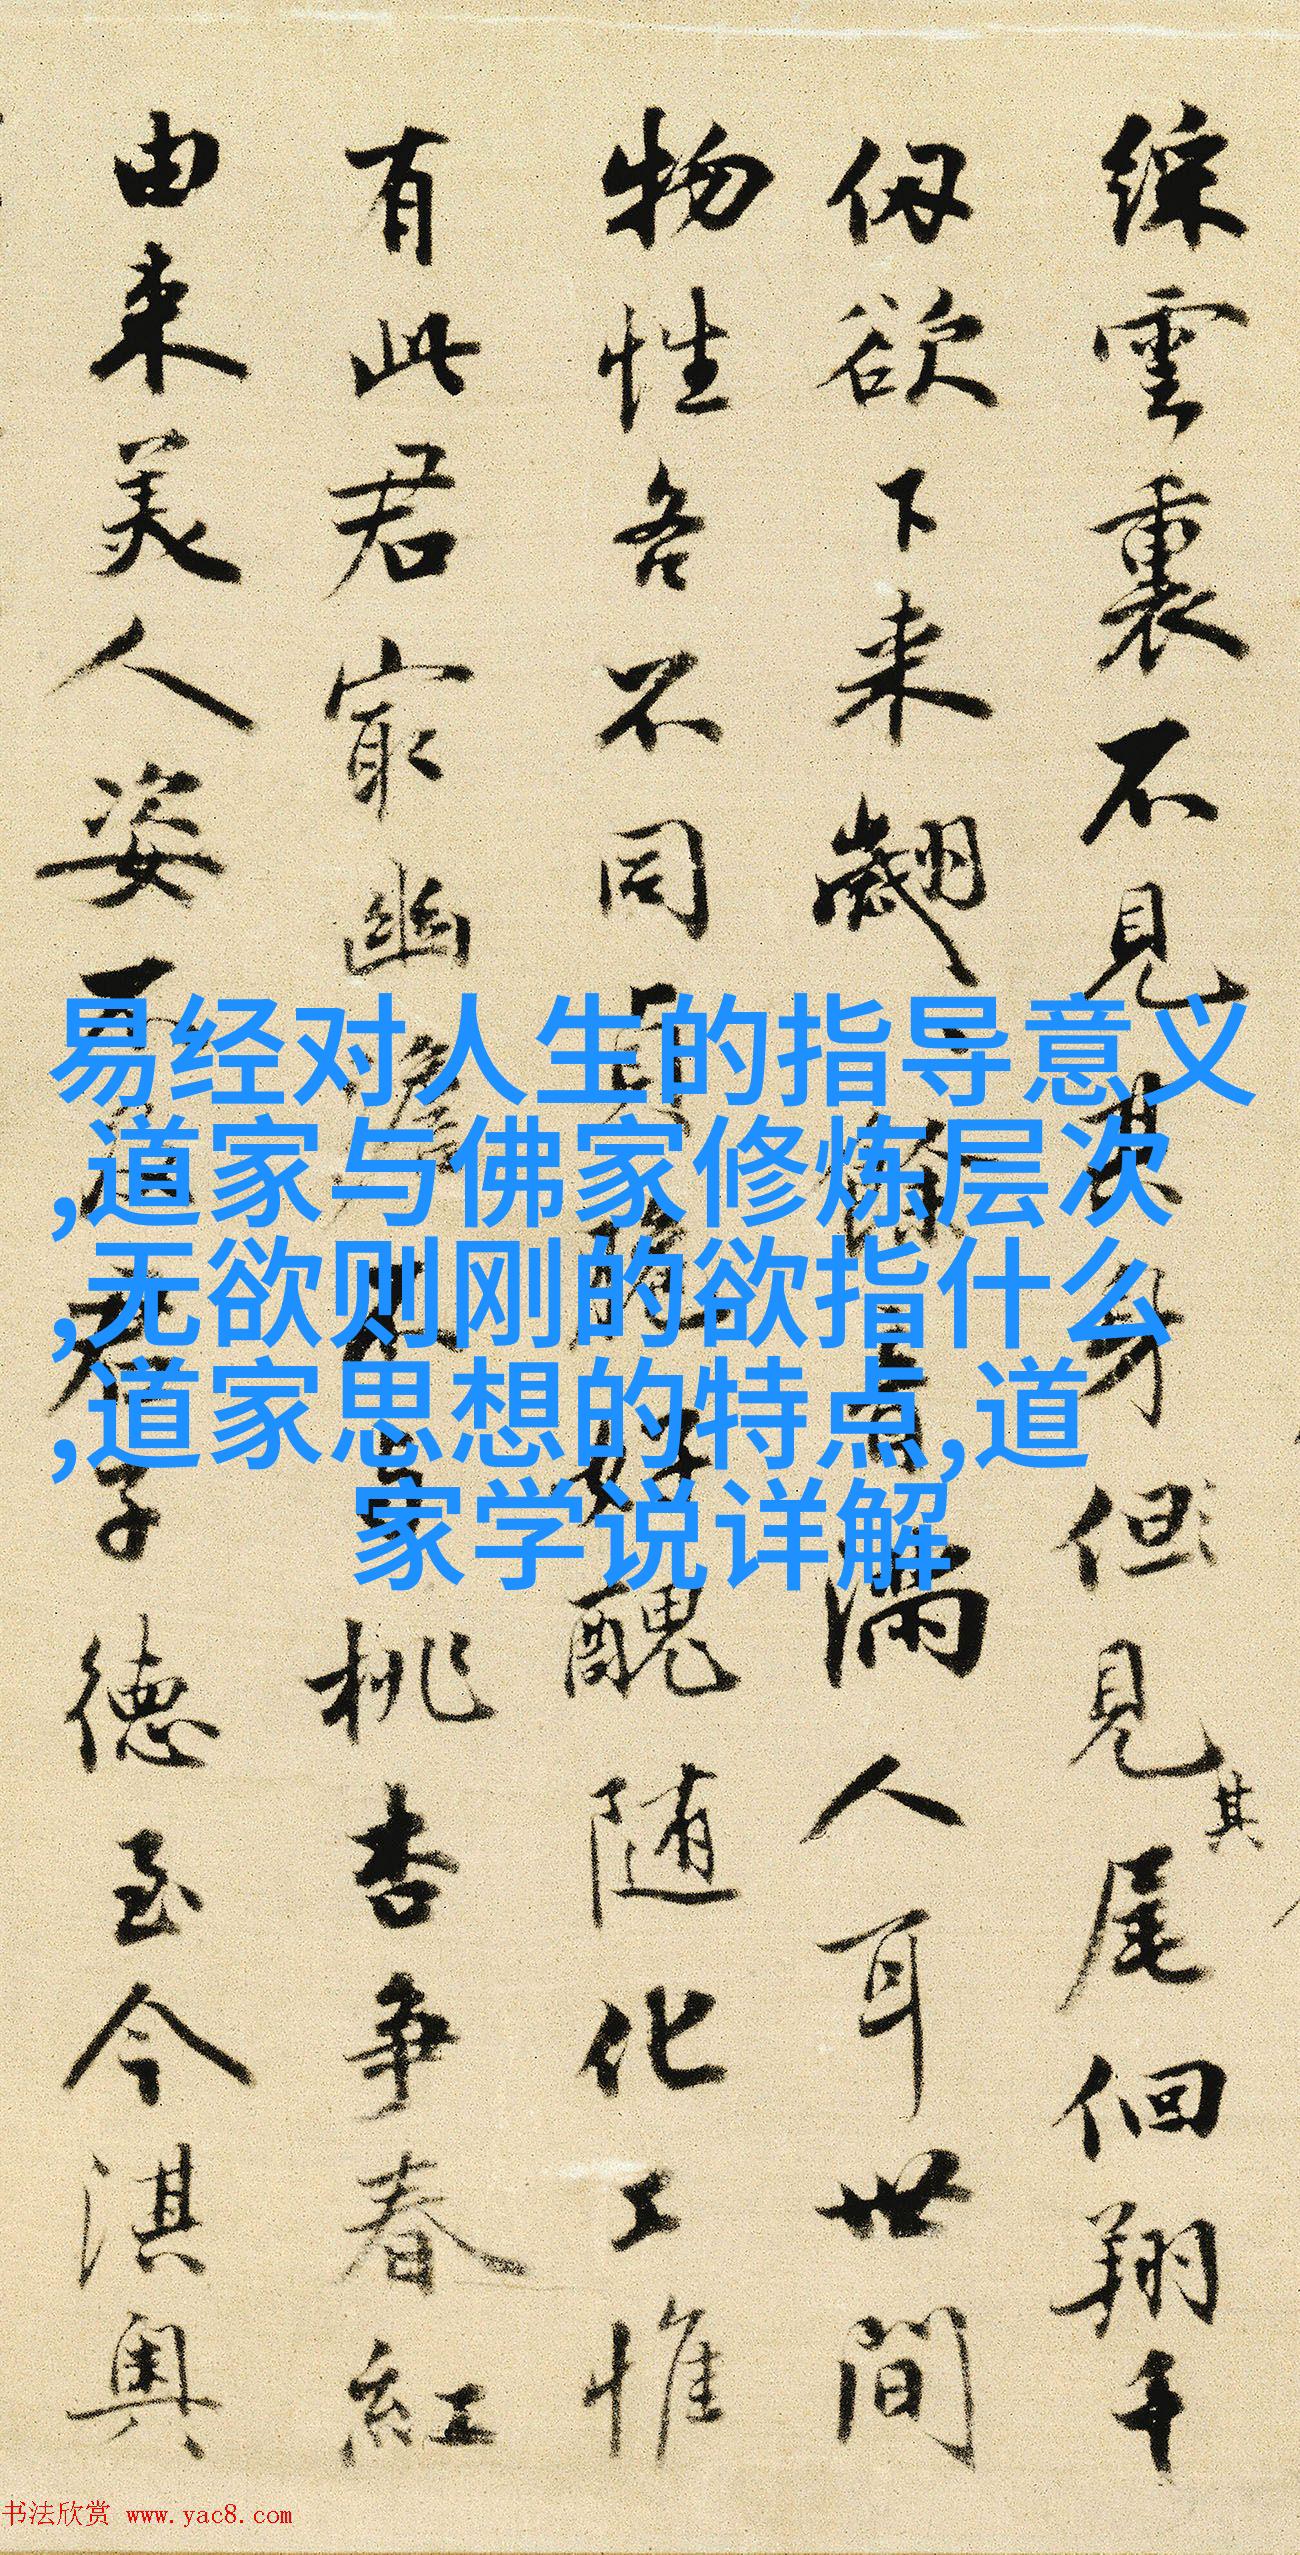 綵雲裏不見其身但見其尾佪翔千
仞欲下来翽餘音满人耳世間
物性各不同妍醜随化工惟
有此君寂幽澹不桃杏争春紅
由来美人姿不君子德至今淇奥
易经对人生的指导意义
,道家与佛家修炼层次
,无欲则刚的欲指什么
,道家思想的特点,道
家学说详解
书法欣赏 www.yac8.com